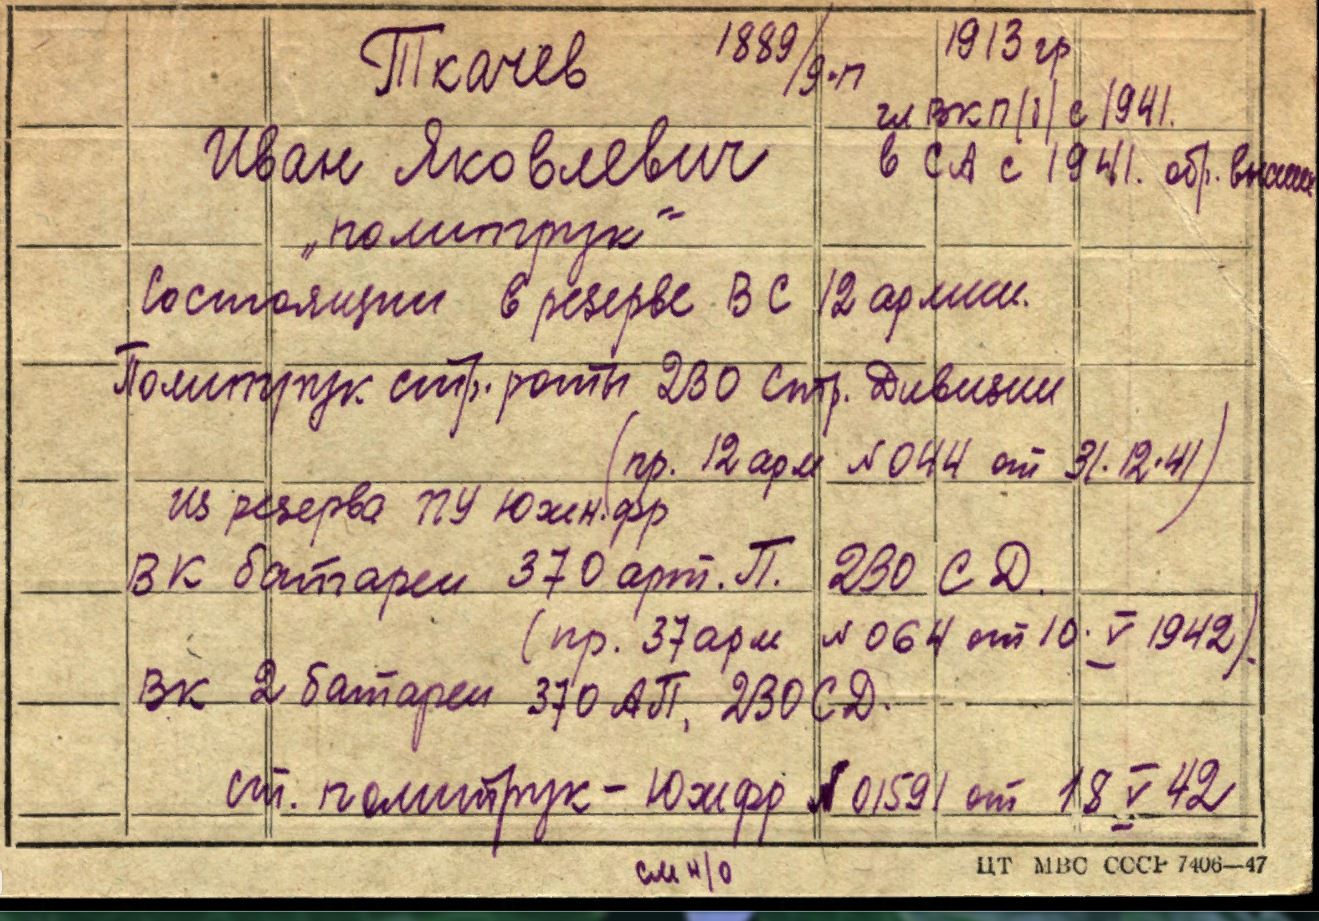 Ткачев 1889/9-п 1913 гр
чл ВКП/б/ с 1941.
Иван Яковлевич в СА с 1941. обр. высшее
„политрук“
Состоящий в резерве ВС 12 армии.
Политрук стр. роты 230 Стр. Дивизии
(пр. 12 арм № 044 от 31.12.41)
из резерва ПУ Южн.фр
ВК батареи 370 арт. П. 230 СД.
(пр. 37 арм № 064 от 10.V 1942).
ВК 2 батареи 370 АП, 230 СД.
ст. политрук – Южфр № 01591 от 18 V 42
см н/о
ЦТ МВС СССР 7406—47